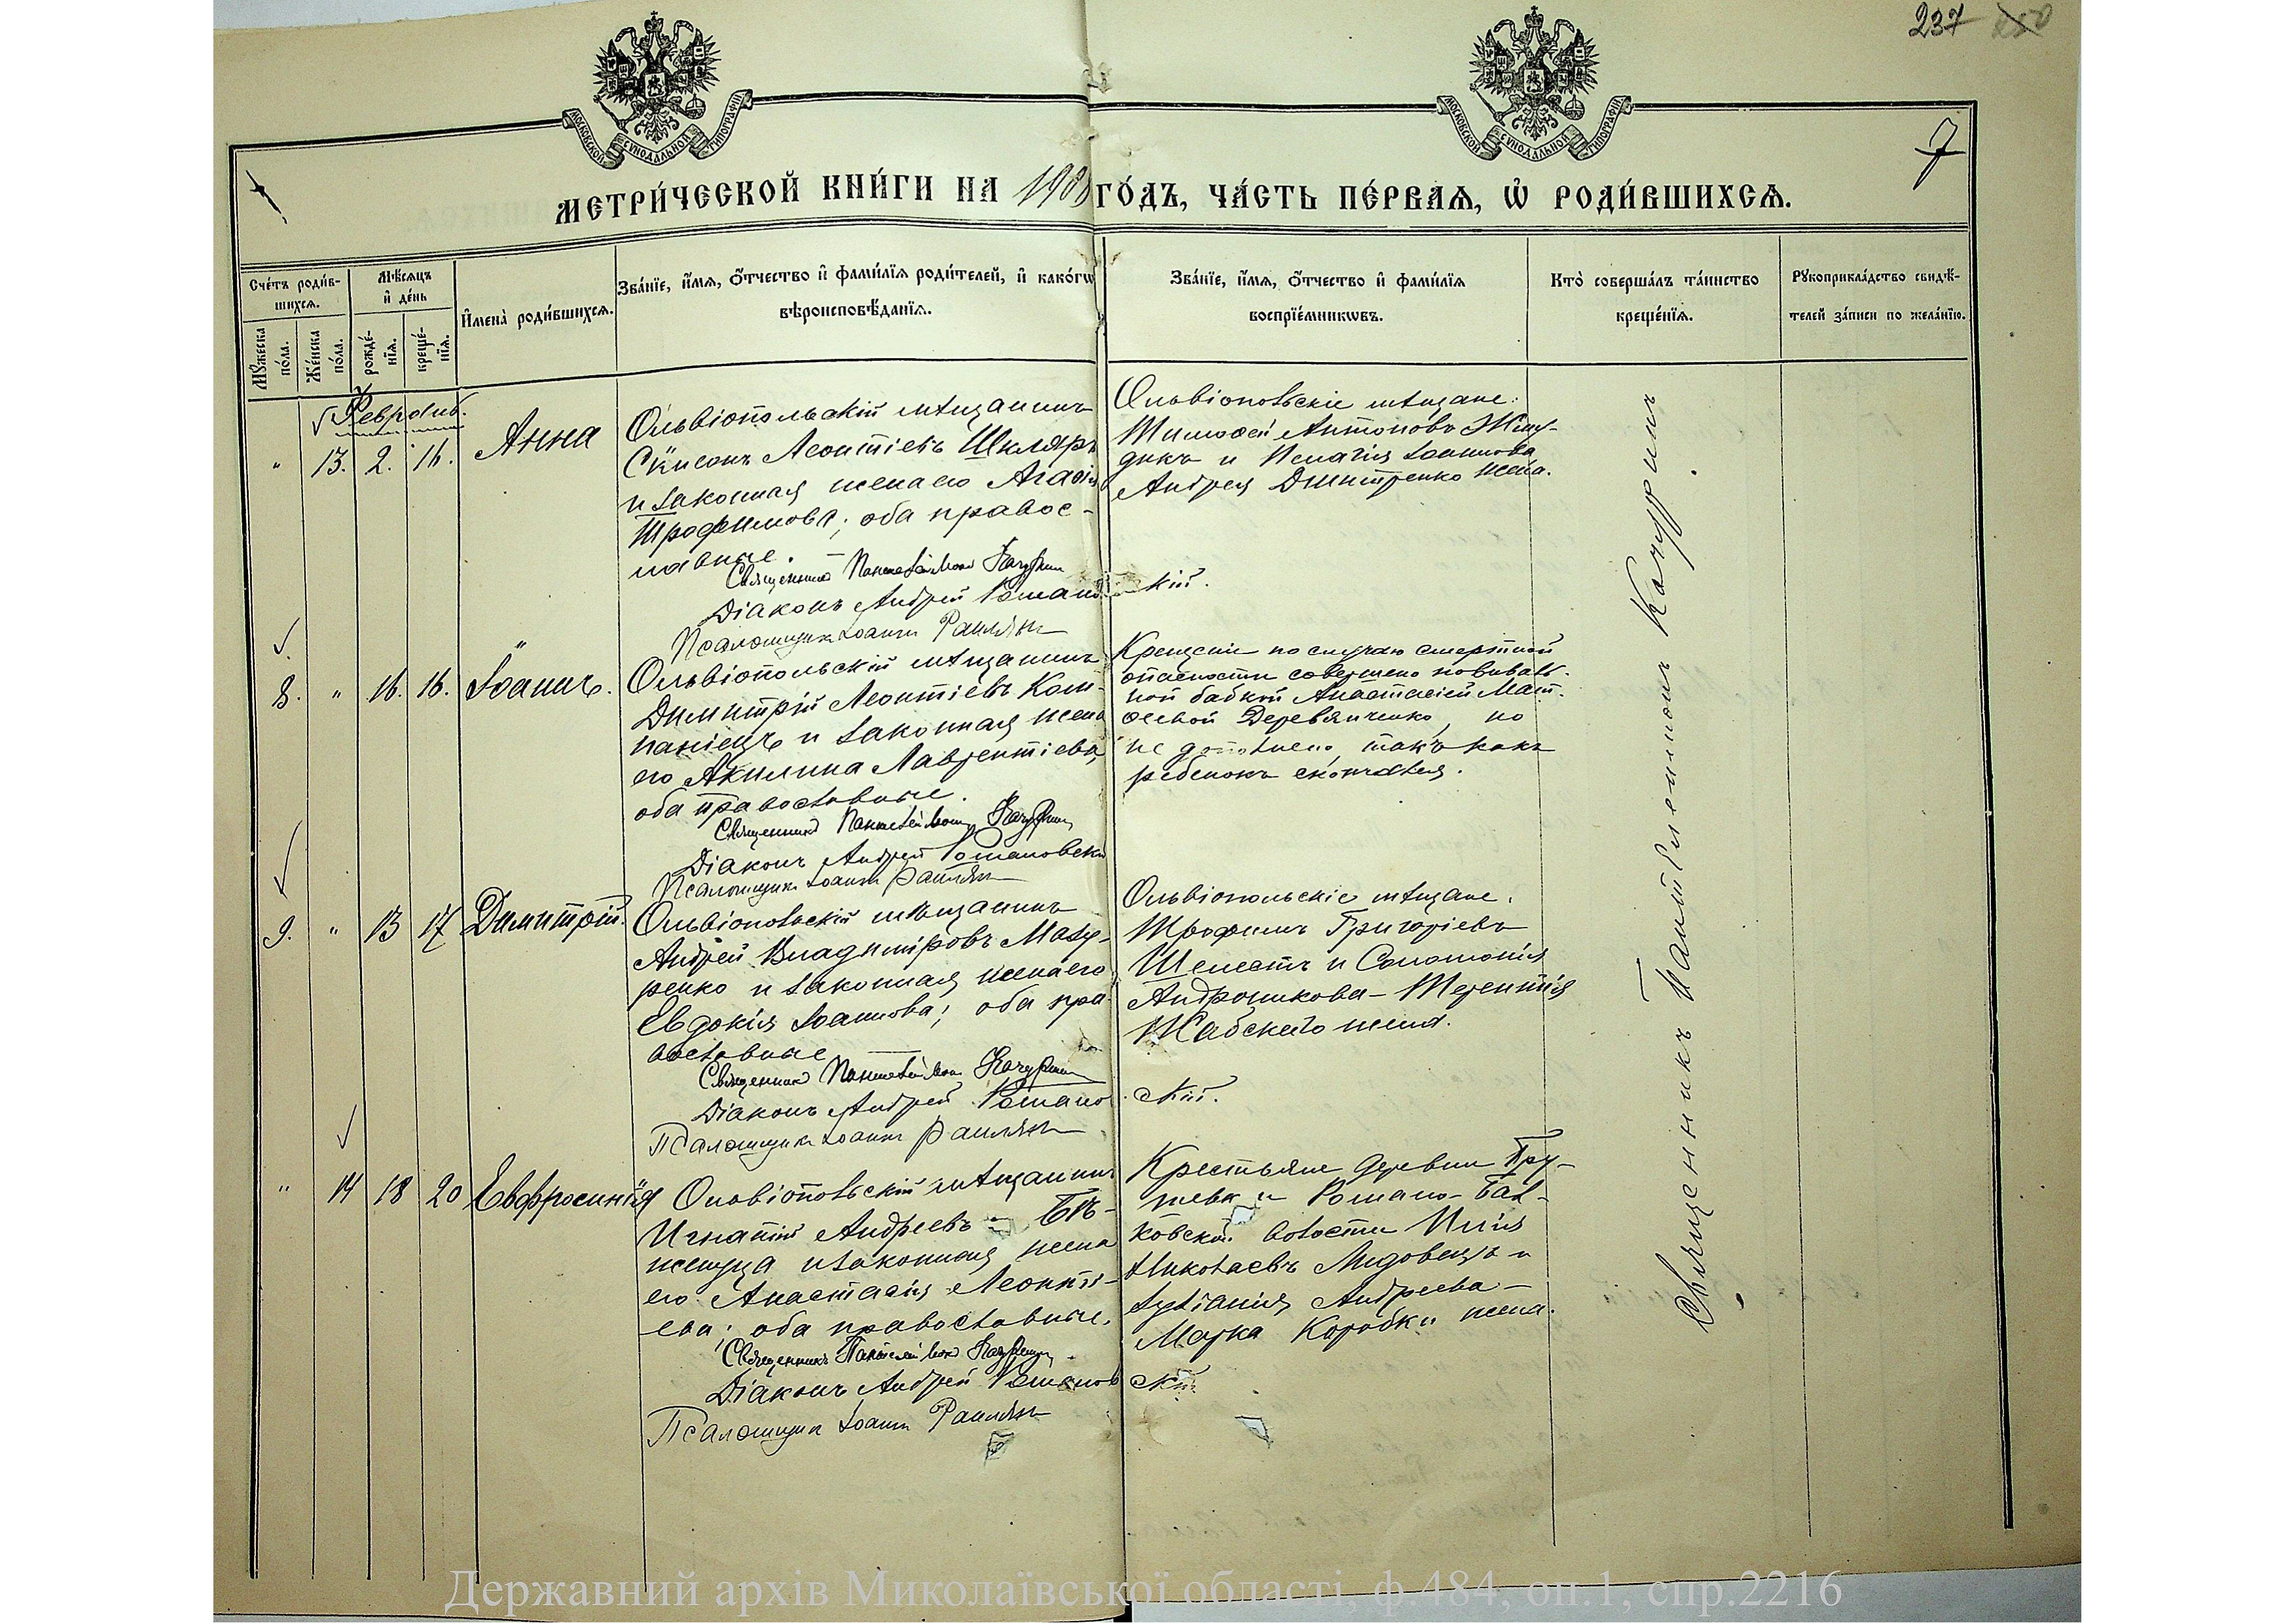 237
МОСКОВСКОЙ СѴНОДАЛЬНОЙ ТИПОГРАФІИ
МОСКОВСКОЙ СѴНОДАЛЬНОЙ ТИПОГРАФІИ
7
МЕТРИ́ЧЕСКОЙ КНИ́ГИ НА 190 ГО́ДЪ, ЧА́СТЬ ПЕ́РВАѦ, Ѡ РОДИ́ВШИХСѦ.
Сче́тъ роди́в-
шихсѧ.
Мꙋжеска по́ла.
Же́нска по́ла.
Мѣ́сѧцъ и де́нь
рожде́-нїѧ.
креще́-нїѧ.
Имена̀ роди́вшихсѧ.
Зва́нїе, и́мѧ, о́тчество и фами́лїѧ роди́телей, и како́гѡ
вѣроисповѣ́данїѧ.
Зва́нїе, и́мѧ, о́тчество и фами́лїѧ
воспрїе́мникѡвъ.
Кто̀ соверша́лъ та́инство
креще́нїѧ.
Рꙋкоприкла́дство свидѣ́-
телей за́писи по жела́нїю.
Февраль.
" 13. 2. 16. Анна
Ольвіопольскій мѣщанинъ
Леонтіевъ Шкляръ
и законная жена его Агафія
Трофимова; оба правос-
лавные.
Священникъ Пантелеймонъ Качуринъ
Діаконъ Андрей Романовскій.
Псаломщикъ Іоаннъ
Ольвіопольскіе мѣщане:
Тимофей Антоновъ
и Пелагія Іоаннова
Андрея Дмитренко жена.
8. " 16. 16. Іоаннъ.
Ольвіопольскій мѣщанинъ
Димитрій Леонтіевъ Ком-
панiецъ и законная жена
его Акилина Лаврентіева,
оба православные.
Священникъ Пантелеймонъ Качуринъ
Діаконъ Андрей Романовскій
Псаломщикъ Іоаннъ
Крещеніе по случаю смертной
опасности совершено повиваль-
ной бабкой Анастасіей Мат-
ѳеевой Деревянченко, но
не дополнено, такъ какъ
ребенокъ скончался.
9. " 13 17 Димитрій.
Ольвіопольскій мѣщанинъ
Андрей Владиміровъ Мазу-
ренко и законная жена его
Евдокія Іоаннова; оба пра-
вославные
Священникъ Пантелеймонъ Качуринъ
Діаконъ Андрей Романовскій.
Псаломщикъ Іоаннъ
Ольвіопольскіе мѣщане.
Трофимъ Григоріевъ
Шелестъ и Соломонія
Андроникова - Терентія
Жабскаго жена.
" 14 18 20 Евфросинія
Ольвіопольскій мѣщанинъ
Игнатій Андреевъ - Бѣ-
жепуца и законная жена
его Анастасія Леонті-
ева; оба православные.
Священникъ Пантелеймонъ Качуринъ
Діаконъ Андрей Романовскій
Псаломщикъ Іоаннъ
Крестьяне деревни
Романо-Бал-
ковской волости Илія
Николаевъ Лидовецъ и
Андреева -
Марка Коробки жена.
Священникъ Пантелеимонъ Качуринъ.
Державний архів Миколаївської області, ф.484, оп.1, спр.2216